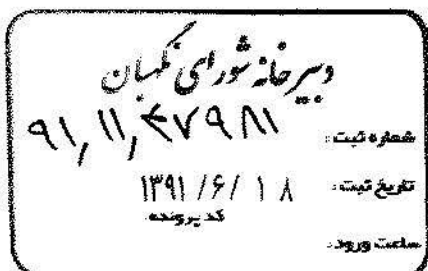 دبیرخانه شورای نگهبان
شماره ثبت: ۹۱/۱۱/۴۷۹۸۱
تاریخ ثبت: ۱۳۹۱/۶/۱۸
کد پرونده
ساعت ورود: